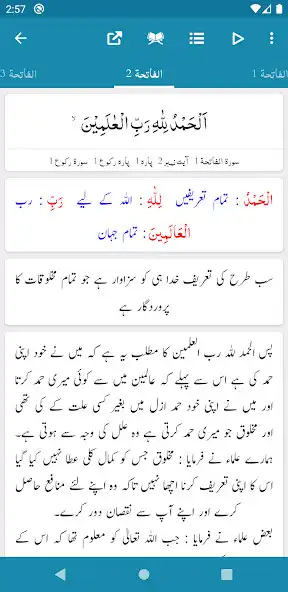 2:57
الفاتحة 1
الفاتحة 2
الفاتحة 3
اَلْحَمْدُ لِلّٰهِ رَبِّ الْعٰلَمِيْنَ ۙ
سورۃ الفاتحۃ 1 آیت نمبر 2 پارہ 1 پارہ رکوع 1 سورۃ رکوع 1
الْحَمْدُ : تمام تعریفیں لِلّٰهِ : اللہ کے لیے رَبِّ : رب
الْعَالَمِينَ : تمام جہان
سب طرح کی تعریف خدا ہی کو سزاوار ہے جو تمام مخلوقات کا
پروردگار ہے
پس الحمد للہ رب العلمین کا مطلب یہ ہے کہ میں نے خود اپنی
حمد کی ہے اس سے پہلے کہ عالمین میں سے کوئی میری حمد کرتا
اور میں نے اپنی خود حمد ازل میں بغیر کسی علت کے کی تھی
اور مخلوق جو میری حمد کرتی ہے وہ علل کی وجہ سے ہوتی ہے۔
ہمارے علماء نے فرمایا : مخلوق جس کو کمال کلی عطا نہیں کیا گیا
اس کا اپنی تعریف کرنا اچھا نہیں تاکہ وہ اپنے لئے منافع حاصل
کرے اور اپنے آپ سے نقصان دور کرے۔
بعض علماء نے فرمایا : جب اللہ تعالیٰ کو معلوم تھا کہ اس کے